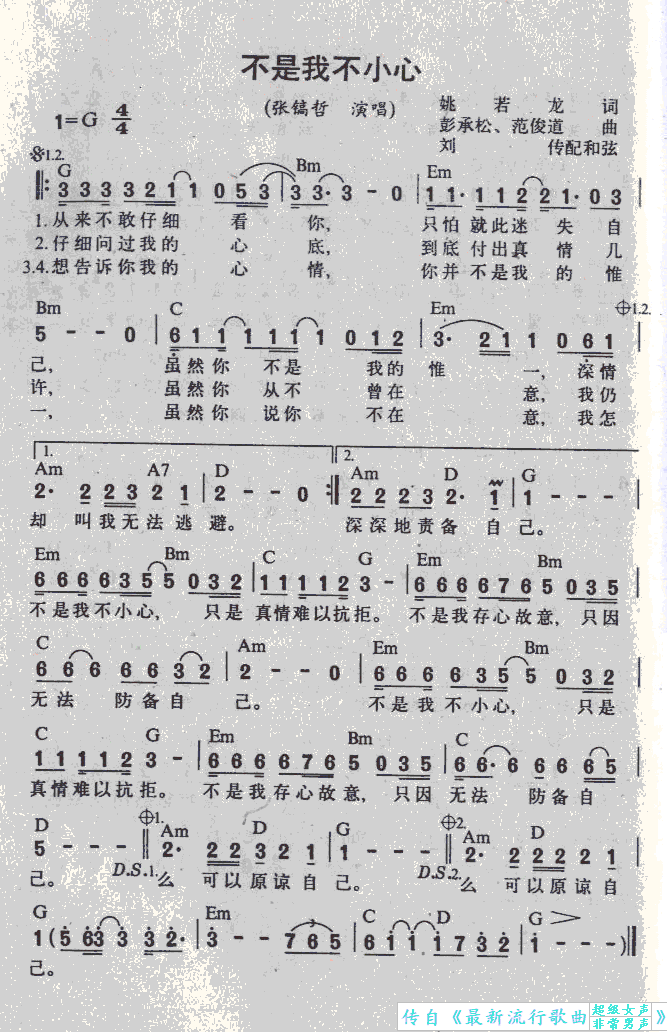 不是我不小心
(张镐哲 演唱)
姚若龙 词
彭承松、范俊道 曲
刘传配和弦
1=G 4/4
𝄋1.2.
G Bm Em
3 3 3 3 2 1 1 0 5 3 | 3 3· 3 - 0 | 1 1· 1 1 2 2 1· 0 3
1.从来不敢仔细 看 你, 只怕就此迷失自
2.仔细问过我的 心 底, 到底付出真情几
3.4.想告诉你我的 心 情, 你并不是我的惟
Bm C Em 𝄌1.2.
5 - - 0 | 6 1 1 1 1 1 1 0 1 2 | 3· 2 1 1 0 6 1
己, 虽然你 不是 我的 惟 一, 深情
许, 虽然你 从不 曾在 意, 我仍
一, 虽然你 说你 不在 意, 我怎
1. 2.
Am A7 D Am D G
2· 2 2 3 2 1 | 2 - - 0 :|| 2 2 2 3 2· 1 | 1 - - -
却 叫我无法逃避。 深深地责备 自己。
Em Bm C G Em Bm
6 6 6 6 3 5 5 0 3 2 | 1 1 1 1 2 3 - | 6 6 6 6 7 6 5 0 3 5
不是我不小心, 只是 真情难以抗拒。 不是我存心故意, 只因
C Am Em Bm
6 6 6 6 6 3 2 | 2 - - 0 | 6 6 6 6 3 5 5 0 3 2
无法 防备自 己。 不是我不小心, 只是
C G Em Bm C
1 1 1 1 2 3 - | 6 6 6 6 7 6 5 0 3 5 | 6 6· 6 6 6 6 5
真情难以抗拒。 不是我存心故意, 只因 无法 防备自
D 𝄌1. Am D G 𝄌2. Am D
5 - - - || 2· 2 2 3 2 1 | 1 - - - || 2· 2 2 2 2 1
己。 D.S.1. 么 可以原谅自己。 D.S.2. 么 可以原谅自
G Em C D G >
1 (5 6 3 3 3 3 2· | 3 - - 7 6 5 | 6 1 1 1 7 3 2 | 1 - - -) ||
己。
传自《最新流行歌曲 超级女声 非常男声》